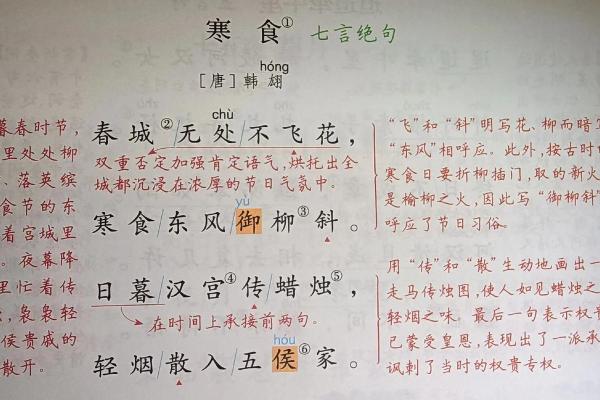 寒食① 七言绝句
hóng
[唐]韩翃
chù
春城②/无处/不飞花，
双重否定加强肯定语气，烘托出全
城都沉浸在浓厚的节日气氛中。
yù
寒食/东风/御柳③/斜。
日暮/汉宫④/传/蜡烛⑤，
在时间上承接前两句。
hóu
轻烟/散入/五侯⑥家。
暮春时节，
里处处柳
、落英缤
食节的东
着宫城里
。夜幕降
里忙着传
，袅袅轻
侯贵戚的
散开。
“飞”和“斜”明写花、柳而暗写
“东风”相呼应。此外，按古时的
寒食日要折柳插门，取的新火
是榆柳之火，因此写“御柳斜”
呼应了节日习俗。
用“传”和“散”生动地画出一
走马传烛图，使人如见蜡烛之
轻烟之味。最后一句表示权贵
已蒙受皇恩，表现出了一派承
讽刺了当时的权贵专权。